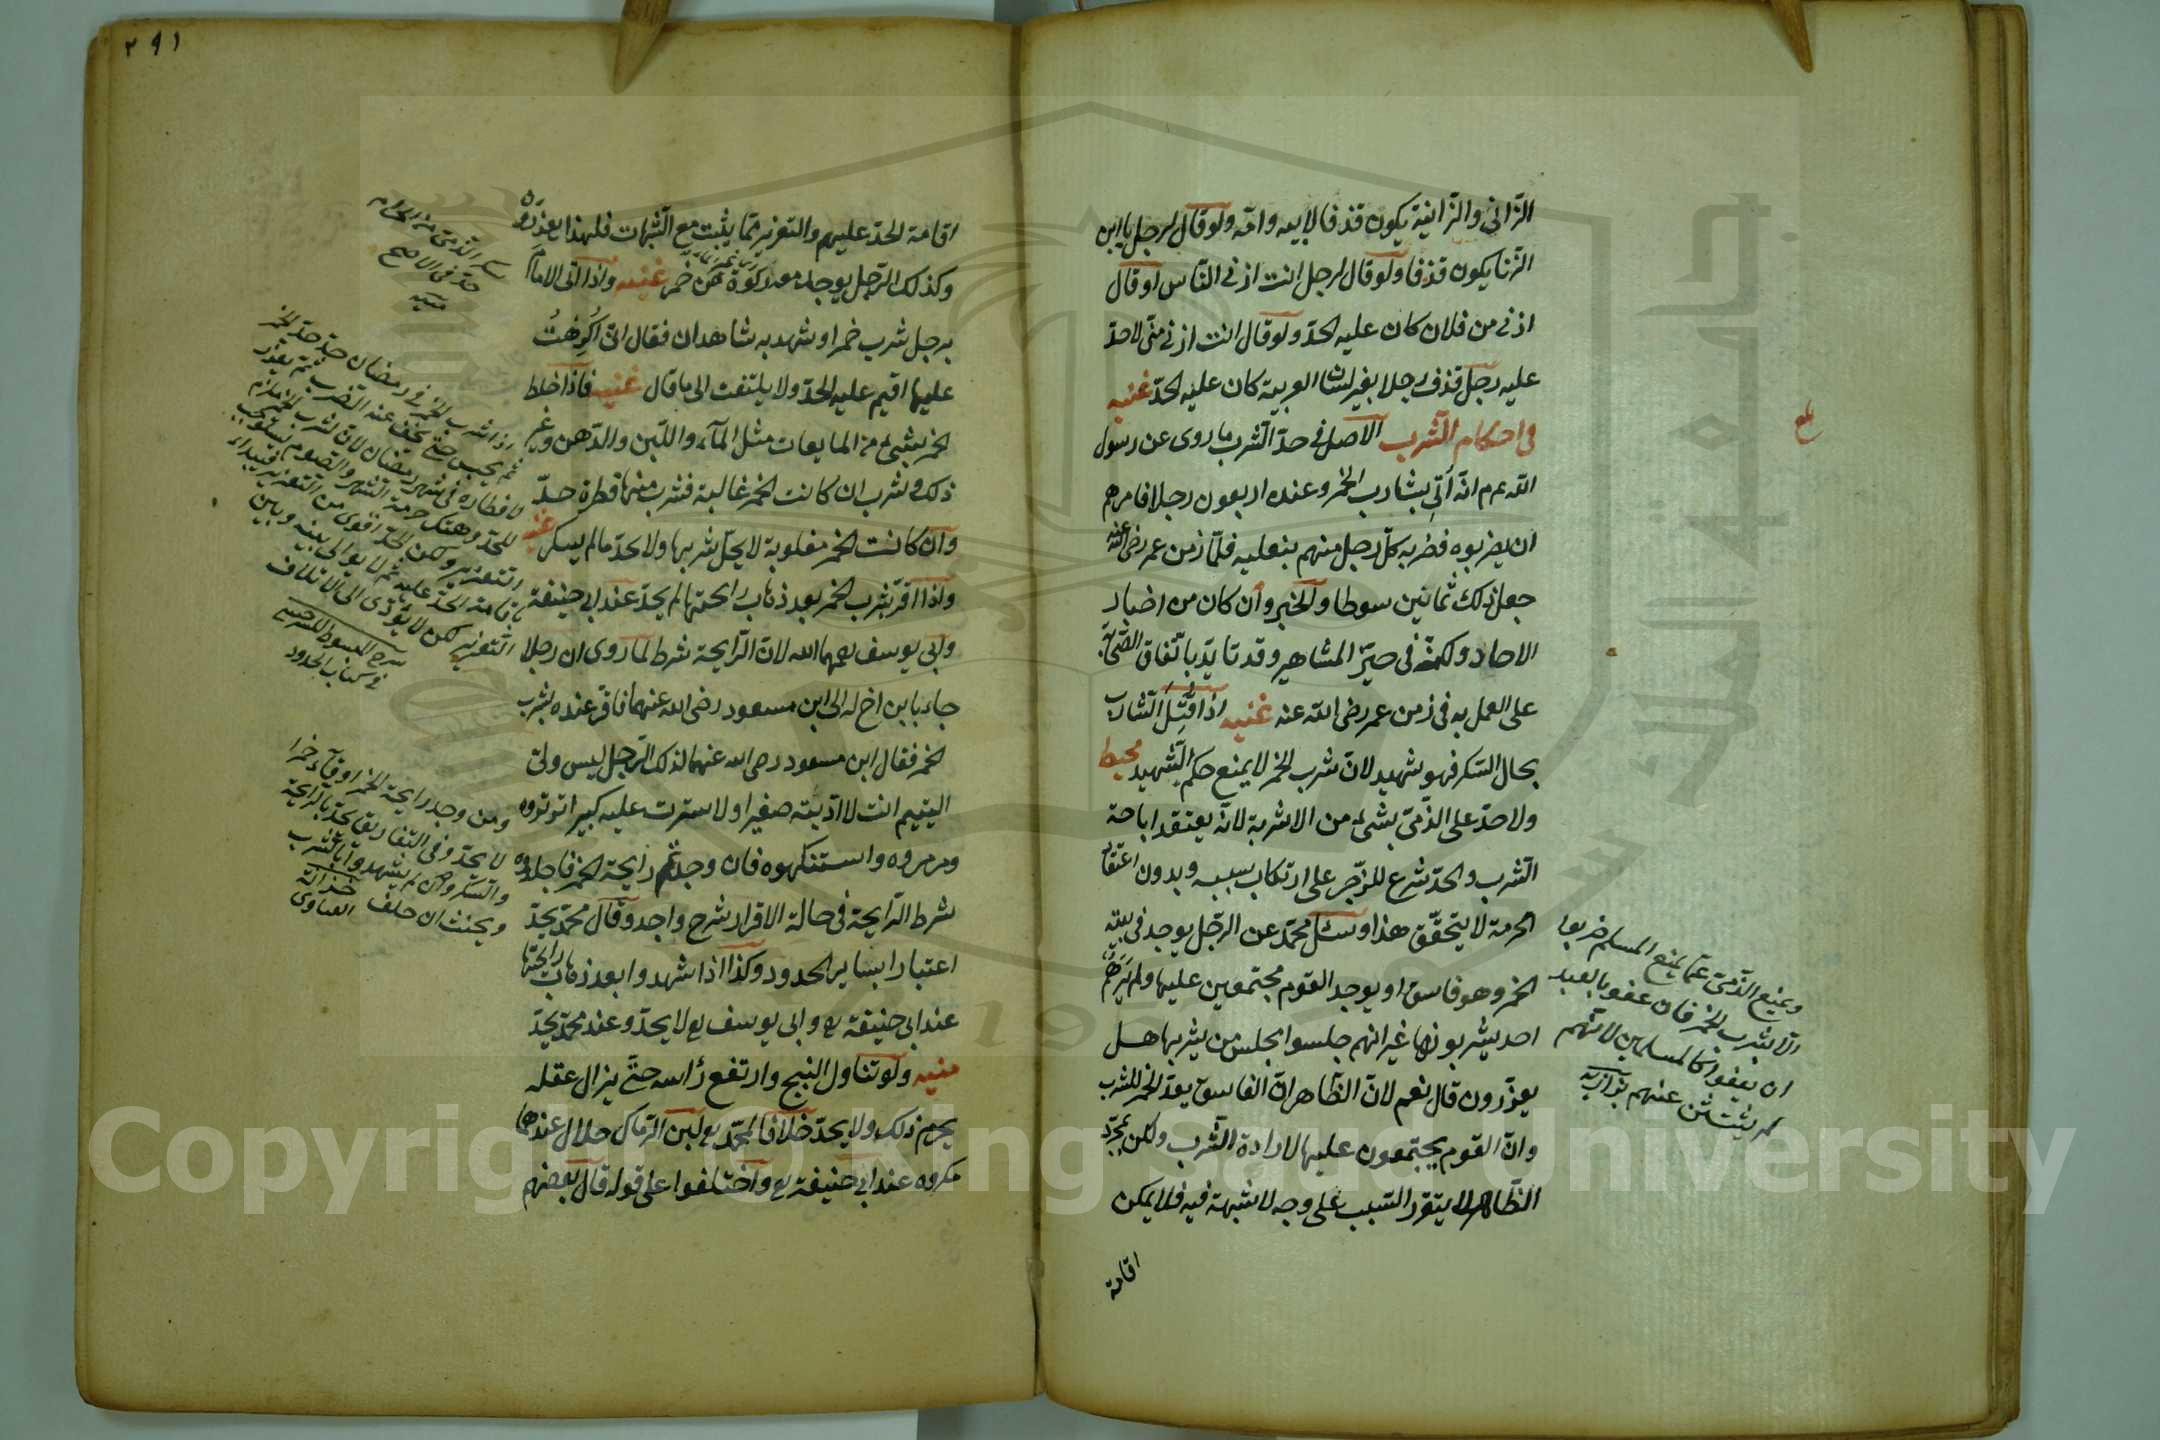 الزاني والزانية يكون قذفا لابيه وامه ولو قال لرجل يا ابن
الزنا يكون قذفا ولو قال لرجل انت ازنى الناس او قال
ازنى من فلان كان عليه الحد ولو قال انت ازنى مني لا حد
عليه رجل قذف رجلا بغير لسان العربية كان عليه الحد غنيه
في احكام الشرب الاصل في حد الشرب ما روى عن رسول
الله عم م انه أتي بشارب الخمر وعنده اربعون رجلا فامرهم
ان يضربوه فضربه كل رجل منهم بنعليه فلما زمن عمر رضي الله عنه
جعل ذلك ثمانين سوطا والخبر وان كان من اخبار
الاحاد ولكنه في حيز المشاهير وقد تايد باتفاق الصحابة
على العمل به في زمن عمر رضى الله عنه غنيه اذا قتل الشارب
بحال السكر فهو شهيد لان شرب الخمر لا يمنع حكم الشهيد محيط
ولا حد على الذمي بشئ من الاشربة لانه يعتقد اباحة
الشرب والحد شرع للزجر على ارتكاب سببه وبدون اعتقاد
الحرمة لا يتحقق هذا وسئل محمد عن الرجل يوجد في بيته
الخمر وهو فاسق او يوجد القوم مجتمعين عليها ولم يرهم
احد يشربونها غير انهم جلسوا مجلس من يشربها هل
يعزرون قال نعم لان الظاهر ان الفاسق يعد الخمر للشرب
وان القوم يجتمعون عليها لارادة الشرب ولكن بمجرد
الظاهر لا يتقرر السبب على وجه لا شبهة فيه فلا يمكن
اقامة
ويمنع الذمي عما يمنع المسلم
الا شرب الخمر فان
ان يغفوا كالمسلمين لانهم
لم يستثن عنهم بزازيه
٢٩١
اقامة الحد عليهم والتعزير مما يثبت مع الشبهات فلهذا يعزروه
وكذلك الرجل يوجد معه ركوة من خمر غنيه واذا اتى الامام
برجل شرب خمرا وشهد به شاهدان فقال اني أكرهت
عليها اقيم عليه الحد ولا يلتفت الى ما قال غنيه فاذا خلط
الخمر بشئ من المايعات مثل المآء واللبن والدهن وغير
ذلك وشرب ان كانت الخمر غالبة فشرب منها قطرة حد
وان كانت الخمر مغلوبة لا يحل شربها ولا حد ما لم يسكر غنيه
واذا اقر بشرب الخمر بعد ذهاب رايحتها لم يحد عند ابي حنيفة
وابي يوسف رحمهما الله لان الرايحة شرط لما روى ان رجلا
جاء بابن اخ له الى ابن مسعود رضى الله عنهما فاقر عنده بشرب
الخمر فقال ابن مسعود رضى الله عنهما لذلك الرجل ليس ولي
اليتيم انت لا ادبته صغيرا ولا سترت عليه كبيرا ترتروه
ومزمزوه واستنكهوه فان وجدتم رايحة الخمر فاجلدوه
شرط الرايحة في حالة الاقرار شرح واحد وقال محمد يحد
اعتبارا بساير الحدود وكذا اذا شهدوا بعد ذهاب رايحتها
عند ابي حنيفة رح وابي يوسف رح لا يحد وعند محمد يحد
منيه ولو تناول البنج وارتفع رأسه حتى يزال عقله
يحرم ذلك ولا يحد خلافا لمحمد رح لبن الرماك حلال عندهما
مكروه عند ابي حنيفة رح واختلفوا على قوله قال بعضهم
سكر الذمي من الحرام
حد في الاصح
منيه
اذا شرب الخمر في رمضان حد حد الخمر
ثم يحبس حتى يخف عنه الضرب ثم يعزر
لافطاره في شهر رمضان لان شرب الخمر ملزم
للحد وهتك حرمة الشهر والصوم يستوجب
التعزير ولكن الحد اقوى من التعزير فيبداء
باقامة الحد عليه ثم لا يوالى بينه وبين
التعزير لكن لا يؤدى الى الاتلاف
شرح المبسوط للسرخسي
في كتاب الحدود
ومن وجد رايحة الخمر او قآء خمرا
لا يحد وفي التفاريق يحد بالرايحة
والسكر وان لم يشهدوا بالشرب
ويحنث ان حلف خزانة
الفتاوى